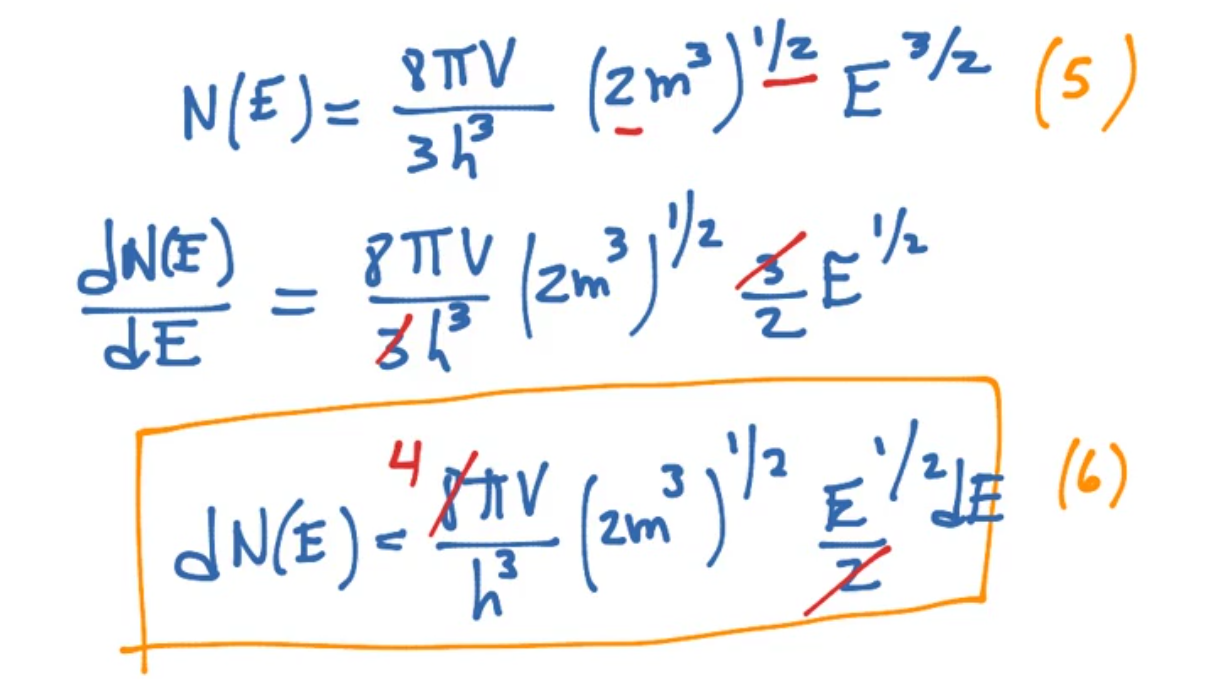 N(E) = 8πV/3h³ (2m³)^1/2 E^3/2 (5)
dN(E)/dE = 8πV/3h³ (2m³)^1/2 3/2 E^1/2
dN(E) = 4 8πV/h³ (2m³)^1/2 E^1/2/2 dE (6)